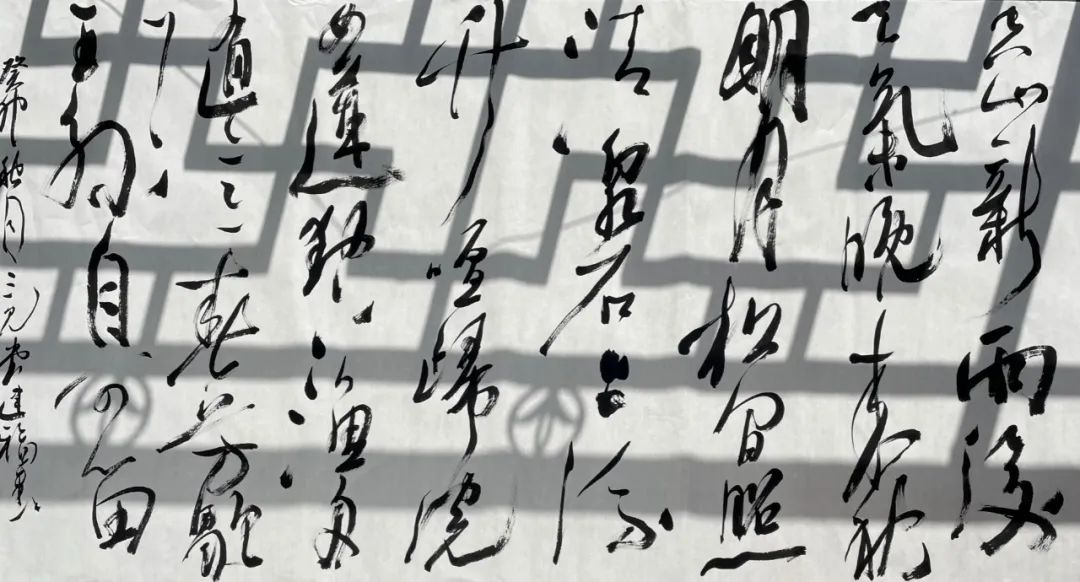 空山新雨後
天氣晚來秋
明月松間照
清泉石上流
竹喧歸浣
女蓮動下漁舟
隨意春芳歇
王孫自可留
癸卯秋月